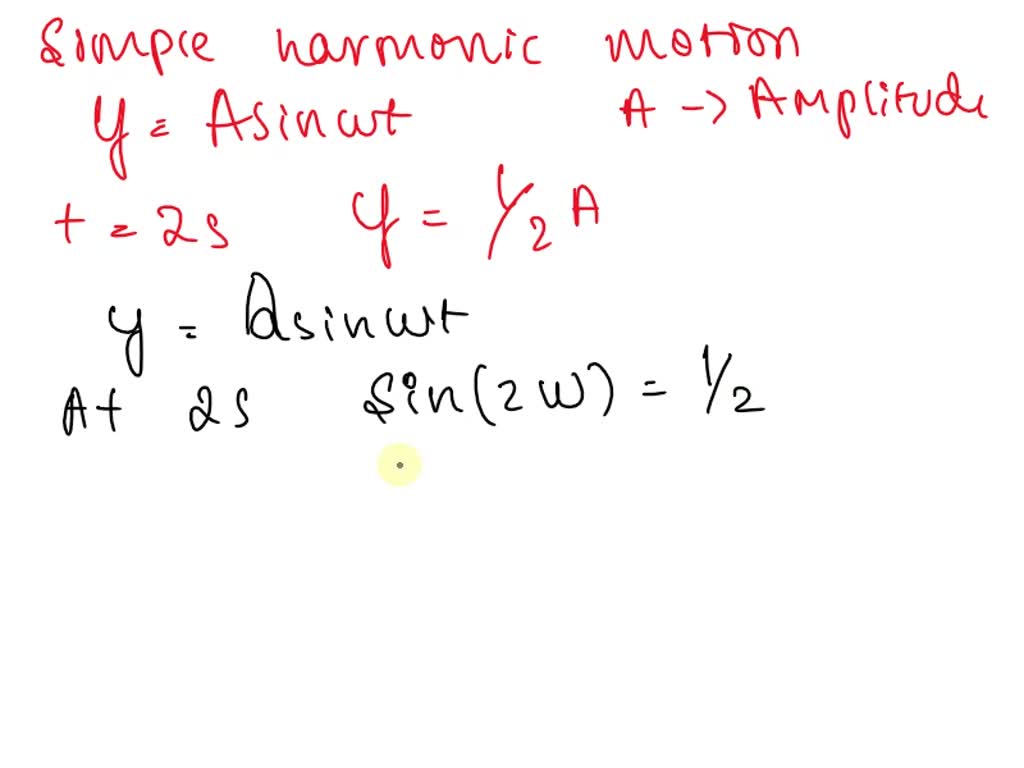 Simple harmonic motion
y = Asinwt A -> Amplitude
t = 2s y = 1/2 A
y = Asinwt
At 2s sin(2w) = 1/2